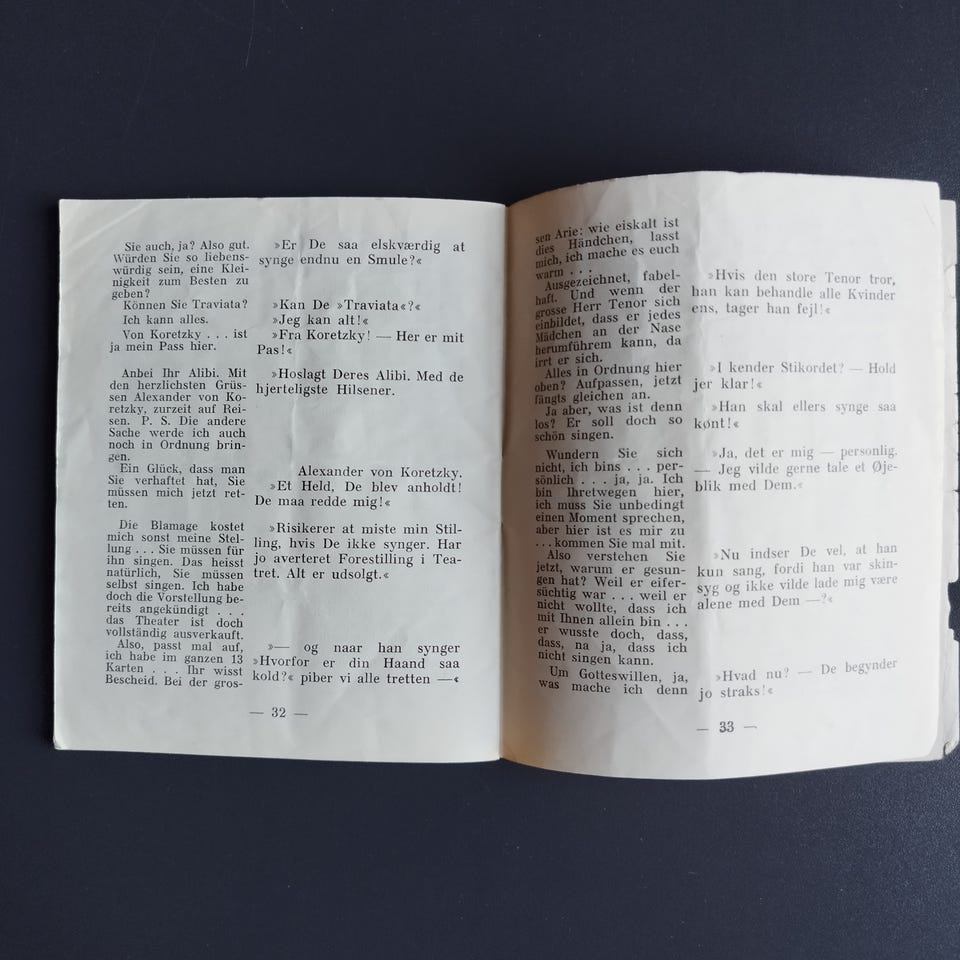 Sie auch, ja? Also gut.
Würden Sie so liebens-
würdig sein, eine Klei-
nigkeit zum Besten zu
geben?
Können Sie Traviata?
Ich kann alles.
Von Koretzky . . . ist
ja mein Pass hier.
Anbei Ihr Alibi. Mit
den herzlichsten Grüs-
sen Alexander von Ko-
retzky, zurzeit auf Rei-
sen. P. S. Die andere
Sache werde ich auch
noch in Ordnung brin-
gen.
Ein Glück, dass man
Sie verhaftet hat, Sie
müssen mich jetzt ret-
ten.
Die Blamage kostet
mich sonst meine Stel-
lung . . . Sie müssen für
ihn singen. Das heisst
natürlich, Sie müssen
selbst singen. Ich habe
doch die Vorstellung be-
reits angekündigt . . .
das Theater ist doch
vollständig ausverkauft.
Also, passt mal auf,
ich habe im ganzen 13
Karten . . . Ihr wisst
Bescheid. Bei der gros-
»Er De saa elskværdig at
synge endnu en Smule?«
»Kan De »Traviata«?«
»Jeg kan alt!«
»Fra Koretzky! — Her er mit
Pas!«
»Hoslagt Deres Alibi. Med de
hjerteligste Hilsener.
Alexander von Koretzky.
»Et Held, De blev anholdt!
De maa redde mig!«
»Risikerer at miste min Stil-
ling, hvis De ikke synger. Har
jo averteret Forestilling i Tea-
tret. Alt er udsolgt.«
»— og naar han synger
»Hvorfor er din Haand saa
kold?« piber vi alle tretten —«
— 32 —
sen Arie: wie eiskalt ist
dies Händchen, lasst
mich, ich mache es euch
warm . . .
Ausgezeichnet, fabel-
haft. Und wenn der
grosse Herr Tenor sich
einbildet, dass er jedes
Mädchen an der Nase
herumführem kann, da
irrt er sich.
Alles in Ordnung hier
oben? Aufpassen, jetzt
fängts gleichen an.
Ja aber, was ist denn
los? Er soll doch so
schön singen.
Wundern Sie sich
nicht, ich bins . . . per-
sönlich . . . ja, ja. Ich
bin Ihretwegen hier,
ich muss Sie unbedingt
einen Moment sprechen,
aber hier ist es mir zu
. . . kommen Sie mal mit.
Also verstehen Sie
jetzt, warum er gesun-
gen hat? Weil er eifer-
süchtig war . . . weil er
nicht wollte, dass ich
mit Ihnen allein bin . . .
er wusste doch, dass,
dass, na ja, dass ich
nicht singen kann.
Um Gotteswillen, ja,
was mache ich denn
»Hvis den store Tenor tror,
han kan behandle alle Kvinder
ens, tager han fejl!«
»I kender Stikordet? — Hold
jer klar!«
»Han skal ellers synge saa
kønt!«
»Ja, det er mig — personlig.
— Jeg vilde gerne tale et Øje-
blik med Dem.«
»Nu indser De vel, at han
kun sang, fordi han var skin-
syg og ikke vilde lade mig være
alene med Dem —?«
»Hvad nu? — De begynder
jo straks!«
— 33 —